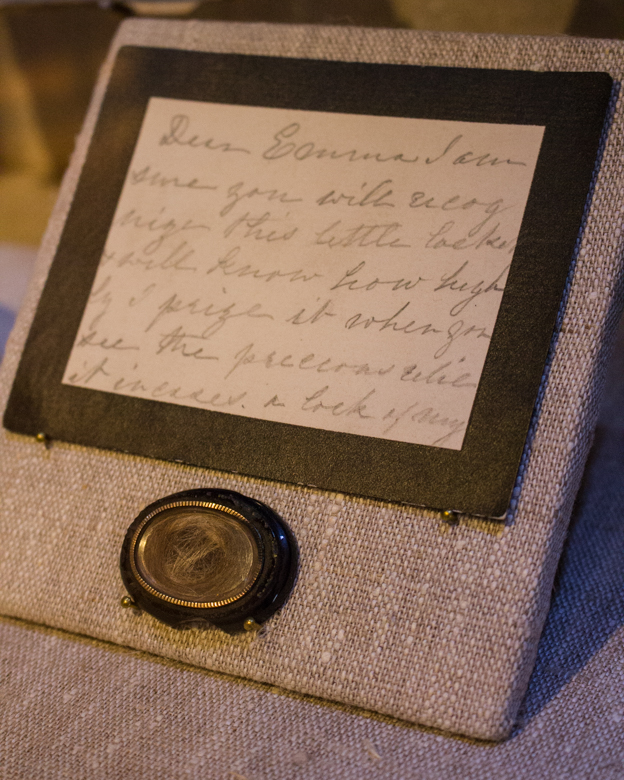 Dear Emma I am
sure you will recog
nize this little locket
& will know how high
ly I prize it when you
see the precious relic
it incases. a lock of my